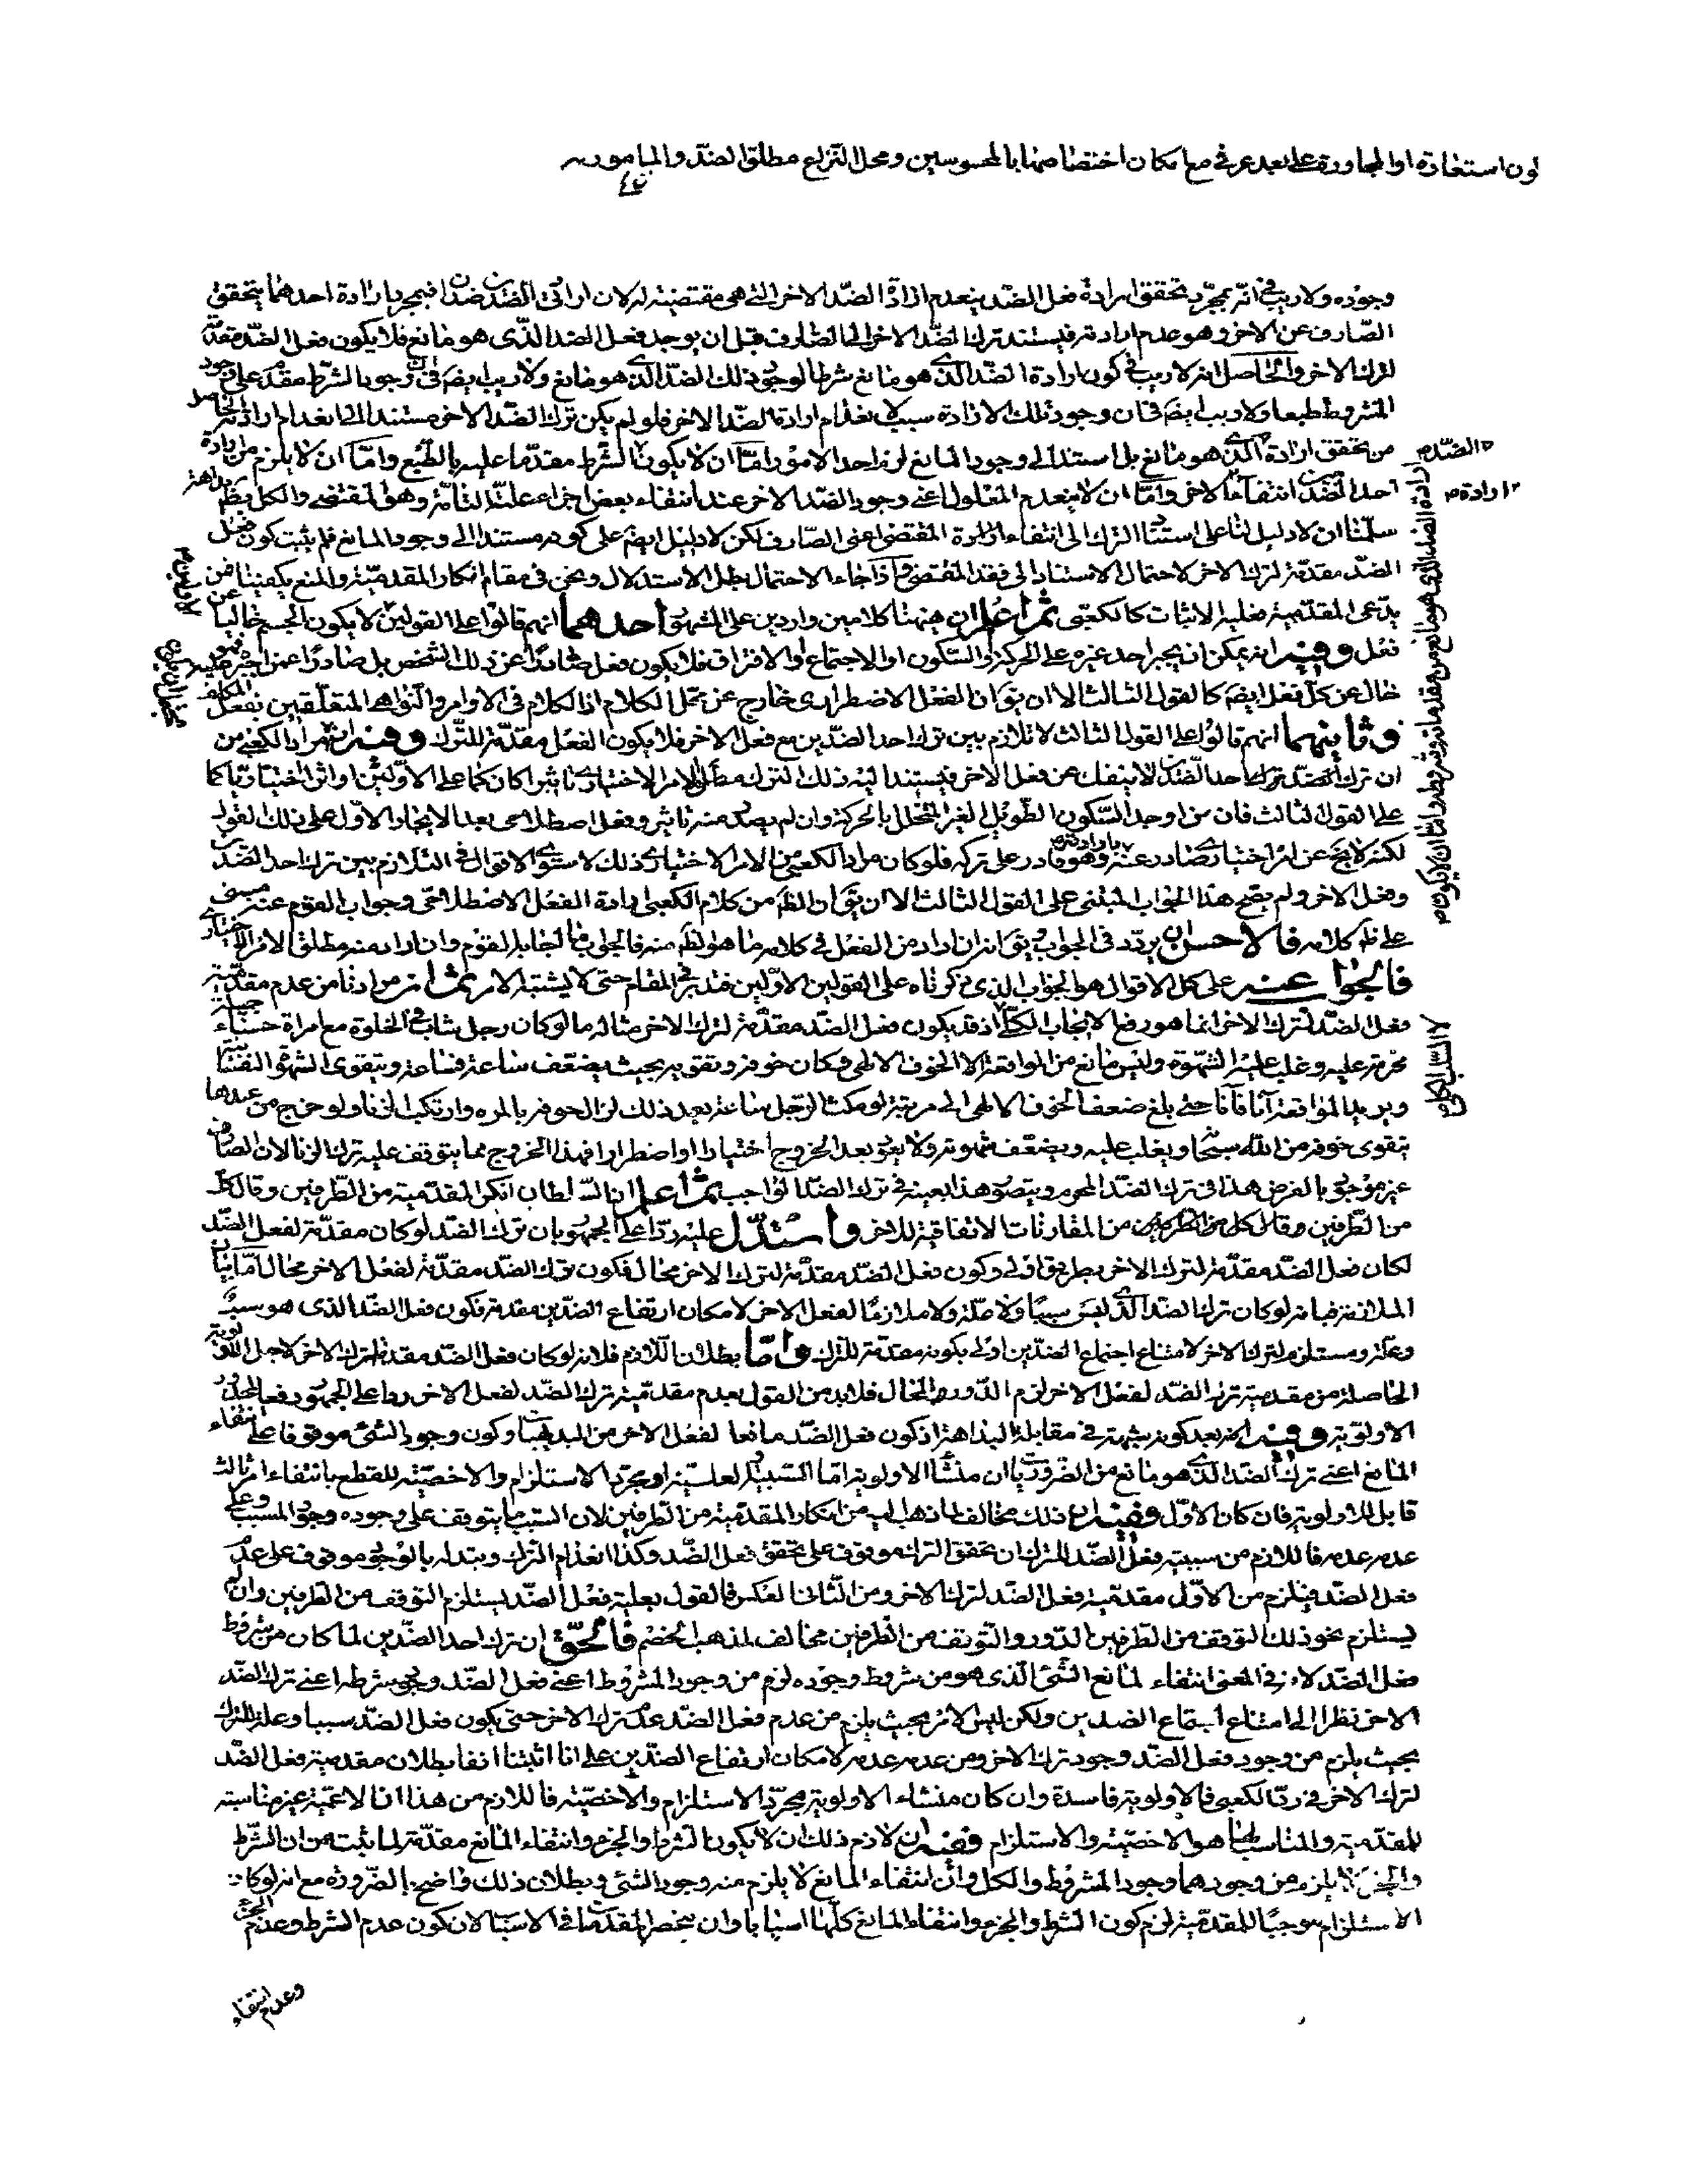 لون استغاذة او المجاورة على بعد عرفي مع امكان اختصاصها بالمحسوسين ومحل النزاع مطلق الضدّ والمامور به
وجوده ولا ريب في انّه بمجرّد تحقق ارادة فعل الضد ينعدم ارادة الضدّ الاخر التي هي مقتضية له لان ارادتي الضدين ضدان فبمجرد ارادة احدهما يتحقق
الصّارف عن الاخر وهو عدم ارادته فيستند ترك الضدّ الاخر الى الصّارف قبل ان يوجد فعل الضد الذّى هو مانع فلا يكون فعل الضدّ مقدّمة
لترك الاخر والحاصل انه لا ريب في كون ارادة الضدّ الذى هو مانع شرطا لوجود ذلك الضدّ الذى هو مانع ولا ريب ايضا فى ان وجود الشرط مقدم على وجود
المشروط طبعا ولا ريب ايضا فى ان وجود تلك الارادة سبب لانعدام ارادة الضدّ الاخر فلو لم يكن ترك الضدّ الاخر مستندا الى انعدام ارادته الحاصل
من تحقق ارادة الذى هو مانع بل استند الى وجود المانع لزم احد الامور امّا ان لا يكون الشرط مقدّما عليه بالطبع وامّا ان لا يلزم من ارادة
احد الضدين انتفاء الاخر وامّا ان لا ينعدم المعلول اعنى وجود الضدّ الاخر عند انتفاء بعض اجزاء علته التامّة وهو المقتضى والكل بديهي
سلّمنا ان لا دليل لنا على استناد الترك الى انتفاء ارادة المقتضى اعنى الصّارف لكن لا دليل ايضا على كونه مستندا الى وجود المانع فلم يثبت كون فعل
الضدّ مقدمة لترك الاخر لاحتمال الاستناد الى فقد المقتضى واذا جاء الاحتمال بطل الاستدلال ونحن فى مقام انكار المقدميّة والمنع يكفينا فمن
يدّعى المقدّمية فعليه الاثبات كالكعبى ثم اعلم ان ههنا كلامين واردين على المشهور احدهما انهم قالوا على القولين لا يكون الجسم خاليا عن
فعل وفيه انه يمكن ان يجبر احد غيره على الحركة او السّكون او الاجتماع او الافتراق فلا يكون فعل صادرا عن ذلك الشخص بل صادرًا عمن اجبر عليه فهو
خال عن كلّ فعل ايضا كالقول الثالث الا ان يقال ان الفعل الاضطرارى خارج عن محل الكلام اذ الكلام فى الاوامر والنواهى المتعلّقين بفعل المكلف
وثانيهما انهم قالوا على القول الثالث لا تلازم بين ترك احد الضدّين مع فعل الاخر فلا يكون الفعل مقدّمة للترك وفيه ان مراد الكعبى من
ان ترك احد الضدين لا ينفك عن فعل الاخر فيستند اليه ذلك الترك مطلق الامر الاختيارى تاثيرا كان كما على الاوّلين او اثرا اختياريّا كما
على القول الثالث فان من اوجد السّكون الطّويل الغير المتخلل بالحركة وان لم يصدر منه تاثير وفعل اصطلاحى بعد الايجاد الاوّل على ذلك القول
لكنه لا يخ عن امر اختيارى صادر عنه بارادته وهو قادر على تركه فلو كان مراد الكعبى من الامر الاختيارى ذلك لاستوى الاقوال فى التلازم بين ترك احد الضدين
وفعل الاخر ولم يصحّ هذا الجواب المبتنى على القول الثالث الا ان يقال ان الظ من كلام الكعبى ارادة الفعل الاصطلاحى وجواب القوم عنه مبنى
على ظ كلامه فالاحسن ان يردّد فى الجواب يقال انه ان اراد من الفعل فى كلامه ما هو الظ منه فالجواب ما اجاب به القوم وان اراد منه مطلق الامر الاختيارى
فالجواب عنه على كل الاقوال هو الجواب الذى ذكرناه على القولين الاوّلين فتدبر فى المقام حتى لا يشتبه الامر ثم ان مرادنا من عدم مقدّمية
فعل الضدّ لترك الاخر انما هو رفع الايجاب الكلّى اذ قد يكون فعل الضدّ مقدّمة لترك الاخر مثاله ما لو كان رجل شاب فى الخلوة مع امراة حسناء جميلة
محرمة عليه وغلب عليه الشهوة وليس مانع من المواقعة الا الخوف الالهى فكان خوفه وتقويه بحيث يضعف ساعة فساعة ويتقوى الشهوة النفسانية
ويريد المواقعة آنا فآنا حتى بلغ ضعف الخوف الالهى الى مرتبة لو مكث الرّجل ساعة بعد ذلك لزال خوفه بالمرة وارتكب الزنا ولو خرج من عندها
يتقوى خوفه من اللّه سبحانه ويغلب عليه ويضعّف شهوته ولا يعود بعد الخروج اختيارا او اضطرارا فهذا الخروج مما يتوقف عليه ترك الزنا لان الصارف
غير موجود بالفرض هذا فى ترك الضدّ المحرم ويتصور هذا بعينه فى ترك الضدّ الواجب ثم اعلم ان السّلطان انكر المقدّمية من الطّرفين وقال كل
من الطّرفين من المقارنات الاتفاقية للاخر واستدل عليه ردّا على الجمهور بان ترك الضدّ لو كان مقدّمة لفعل الضدّ
لكان فعل الضدّ مقدّمة لترك الاخر بطريق اولى وكون فعل الضدّ مقدّمة لترك الاخر محال فكون ترك الضدّ مقدّمة لفعل الاخر محال امّا بيان
الملازمة فبانه لو كان ترك الضدّ الذى ليس سببًا ولا علّة ولا ملازمًا لفعل الاخر لامكان ارتفاع الضدّين مقدمة فكون فعل الضدّ الذى هو سببٌ
وعلة ومستلزم لترك الاخر لامتناع اجتماع الضدّين اولى بكونه مقدّمة للترك وامّا بطلان اللّازم فلانه لو كان فعل الضدّ مقدمة لترك الاخر لاجل الاولوية
الحاصلة من مقدمية ترك الضدّ لفعل الاخر لزم الدّور المحال فلا بد من القول بعدم مقدميّة ترك الضدّ لفعل الاخر ردا على الجمهور دفعا لمحذور
الاولويّة وفيه انه بعد كونه شبهة فى مقابلة البداهة اذ كون فعل الضدّ مانعا لفعل الاخر من البديهيات وكون وجود الشئ موقوفا على انتفاء
المانع اعنى ترك الضدّ الذى هو مانع من الضروريات ان منشأ الاولوية امّا السّببية والعلية او مجرّد الاستلزام والاخصيّة للقطع بانتفاء امر ثالث
قابل للاولوية فان كان الاوّل ففيه ان ذلك مخالف لما ذهب اليه من انكار المقدّمية من الطرفين لان السّبب ما يتوقف على وجوده وجود المسبب وعلى
عدمه عدمه فاللازم من سببية فعل الضدّ للترك ان تحقق الترك موقوف على تحقق فعل الضدّ وكذا انعدام الترك وتبدله بالوجود موقوف على عدم
فعل الضدّ فيلزم من الاوّل مقدميّة فعل الضدّ لترك الاخر ومن الثّانى العكس فالقول بعلية فعل الضدّ يستلزم التوقف من الطرفين وان
يستلزم نحو ذلك التوقف من الطرفين الدّور والتوقف من الطرفين مخالف لمذهب الخصم فالحقّ ان ترك احد الضدّين لما كان من شروط
فعل الضدّ لانه فى المعنى انتفاء لمانع الشئ الّذى هو من شروط وجوده لزم من وجود المشروط اعنى فعل الضدّ وجود شرطه اعنى ترك الضدّ
الاخر نظرا الى امتناع اجتماع الضدين ولكن ليس الامر بحيث يلزم من عدم فعل الضدّ عدم ترك الاخر حتى يكون فعل الضدّ سببا وعلة للترك
بحيث يلزم من وجود فعل الضدّ وجود ترك الاخر ومن عدمه عدمه لامكان ارتفاع الضدّين على انا اثبتنا انفا بطلان مقدمية فعل الضدّ
لترك الاخر فى ردّ الكعبى فالاولوية فاسدة وان كان منشاء الاولوية مجرّد الاستلزام والاخصيّة فاللازم من هذا ان الاعميّة غير مناسبة
للمقدّمية والمناسب لها هو الاخصيّة والاستلزام ففيه ان لازم ذلك ان لا يكون الشرط والجزء وانتفاء المانع مقدّمة لما ثبت من ان الشّرط
والجزء لا يلزم من وجودهما وجود المشروط والكل وان انتفاء المانع لا يلزم منه وجود الشئ وبطلان ذلك واضح بالضّرورة مع انه لو كان
الاستلزام موجبًا للمقدّمية لزم كون الشرط والجزء وانتفاء المانع كلّها اسبابا وان ينحصر المقدمات فى الاسباب لان كون عدم الشرط وعدم الجزء
الضدّ م
ارادة م
لا السّلب الكلى م
وعدم انتفاء